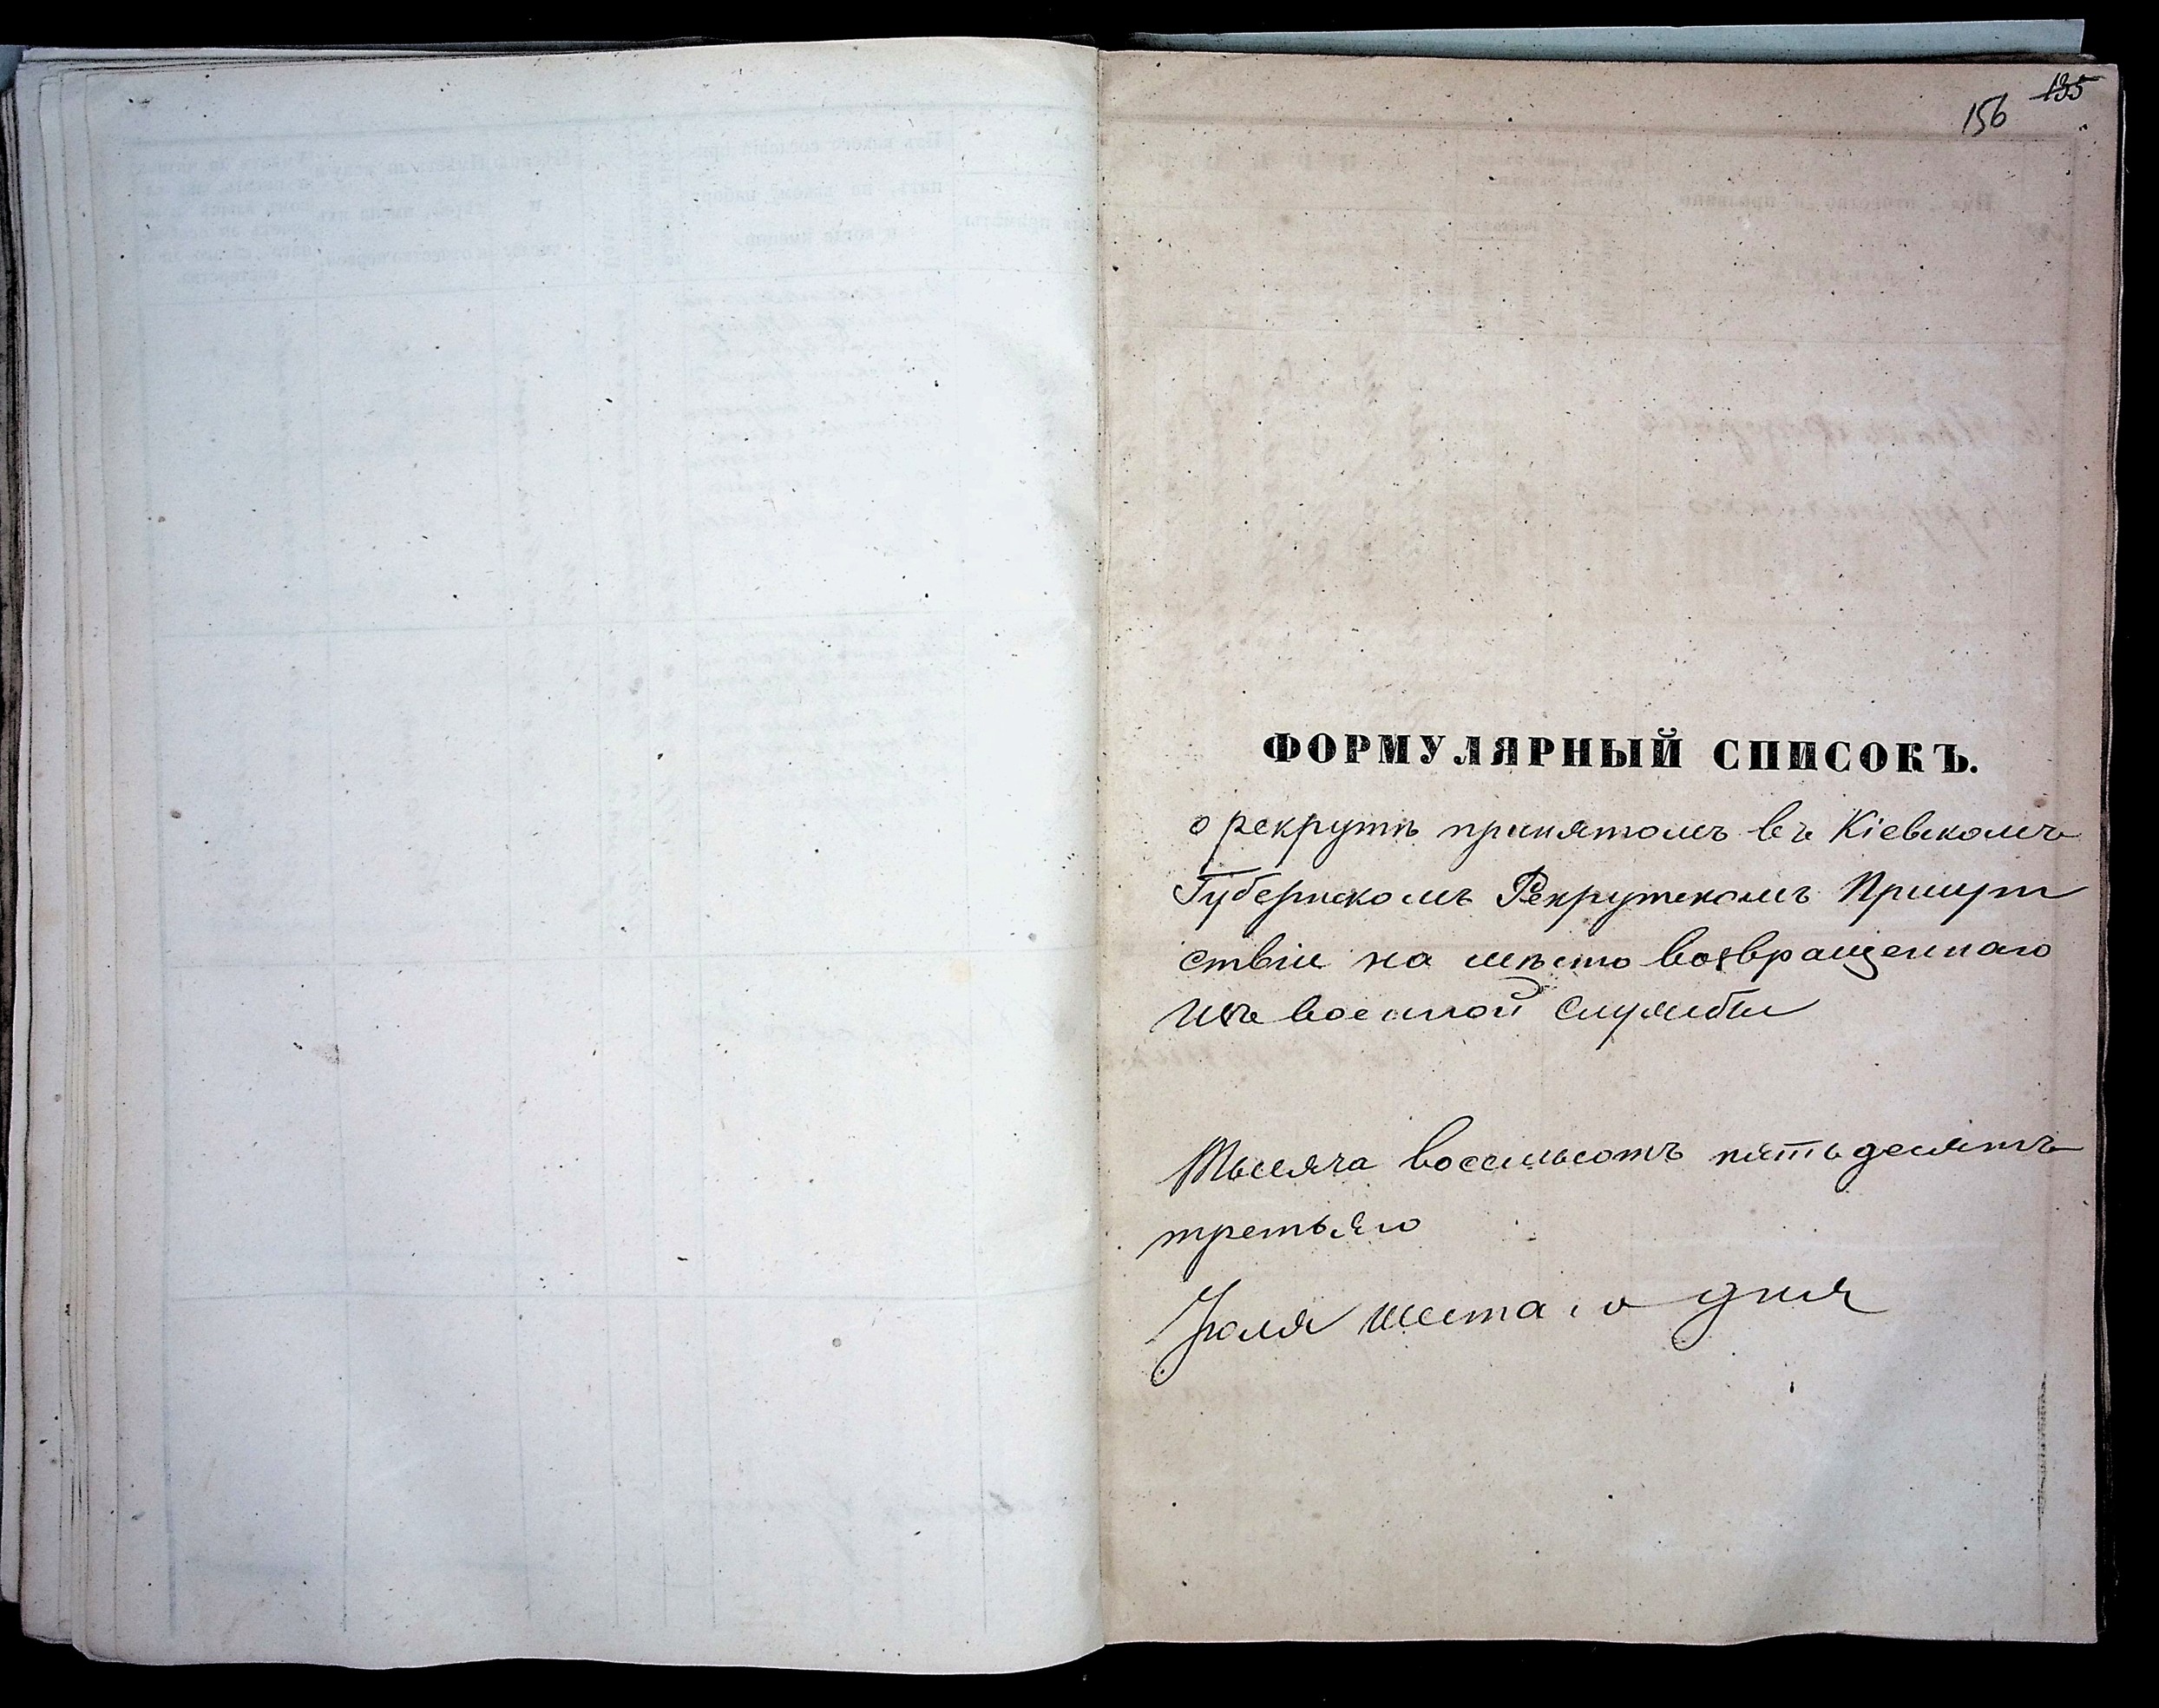 135
156
ФОРМУЛЯРНЫЙ СПИСОКЪ.
о рекрутѣ принятомъ въ Кіевскомъ
Губернскомъ Рекрутскомъ Присут
ствіи на мѣсто возвращеннаго
изъ военной службы
Тысяча восемьсотъ пятьдесятъ
третьяго
Іюля шестаго дня